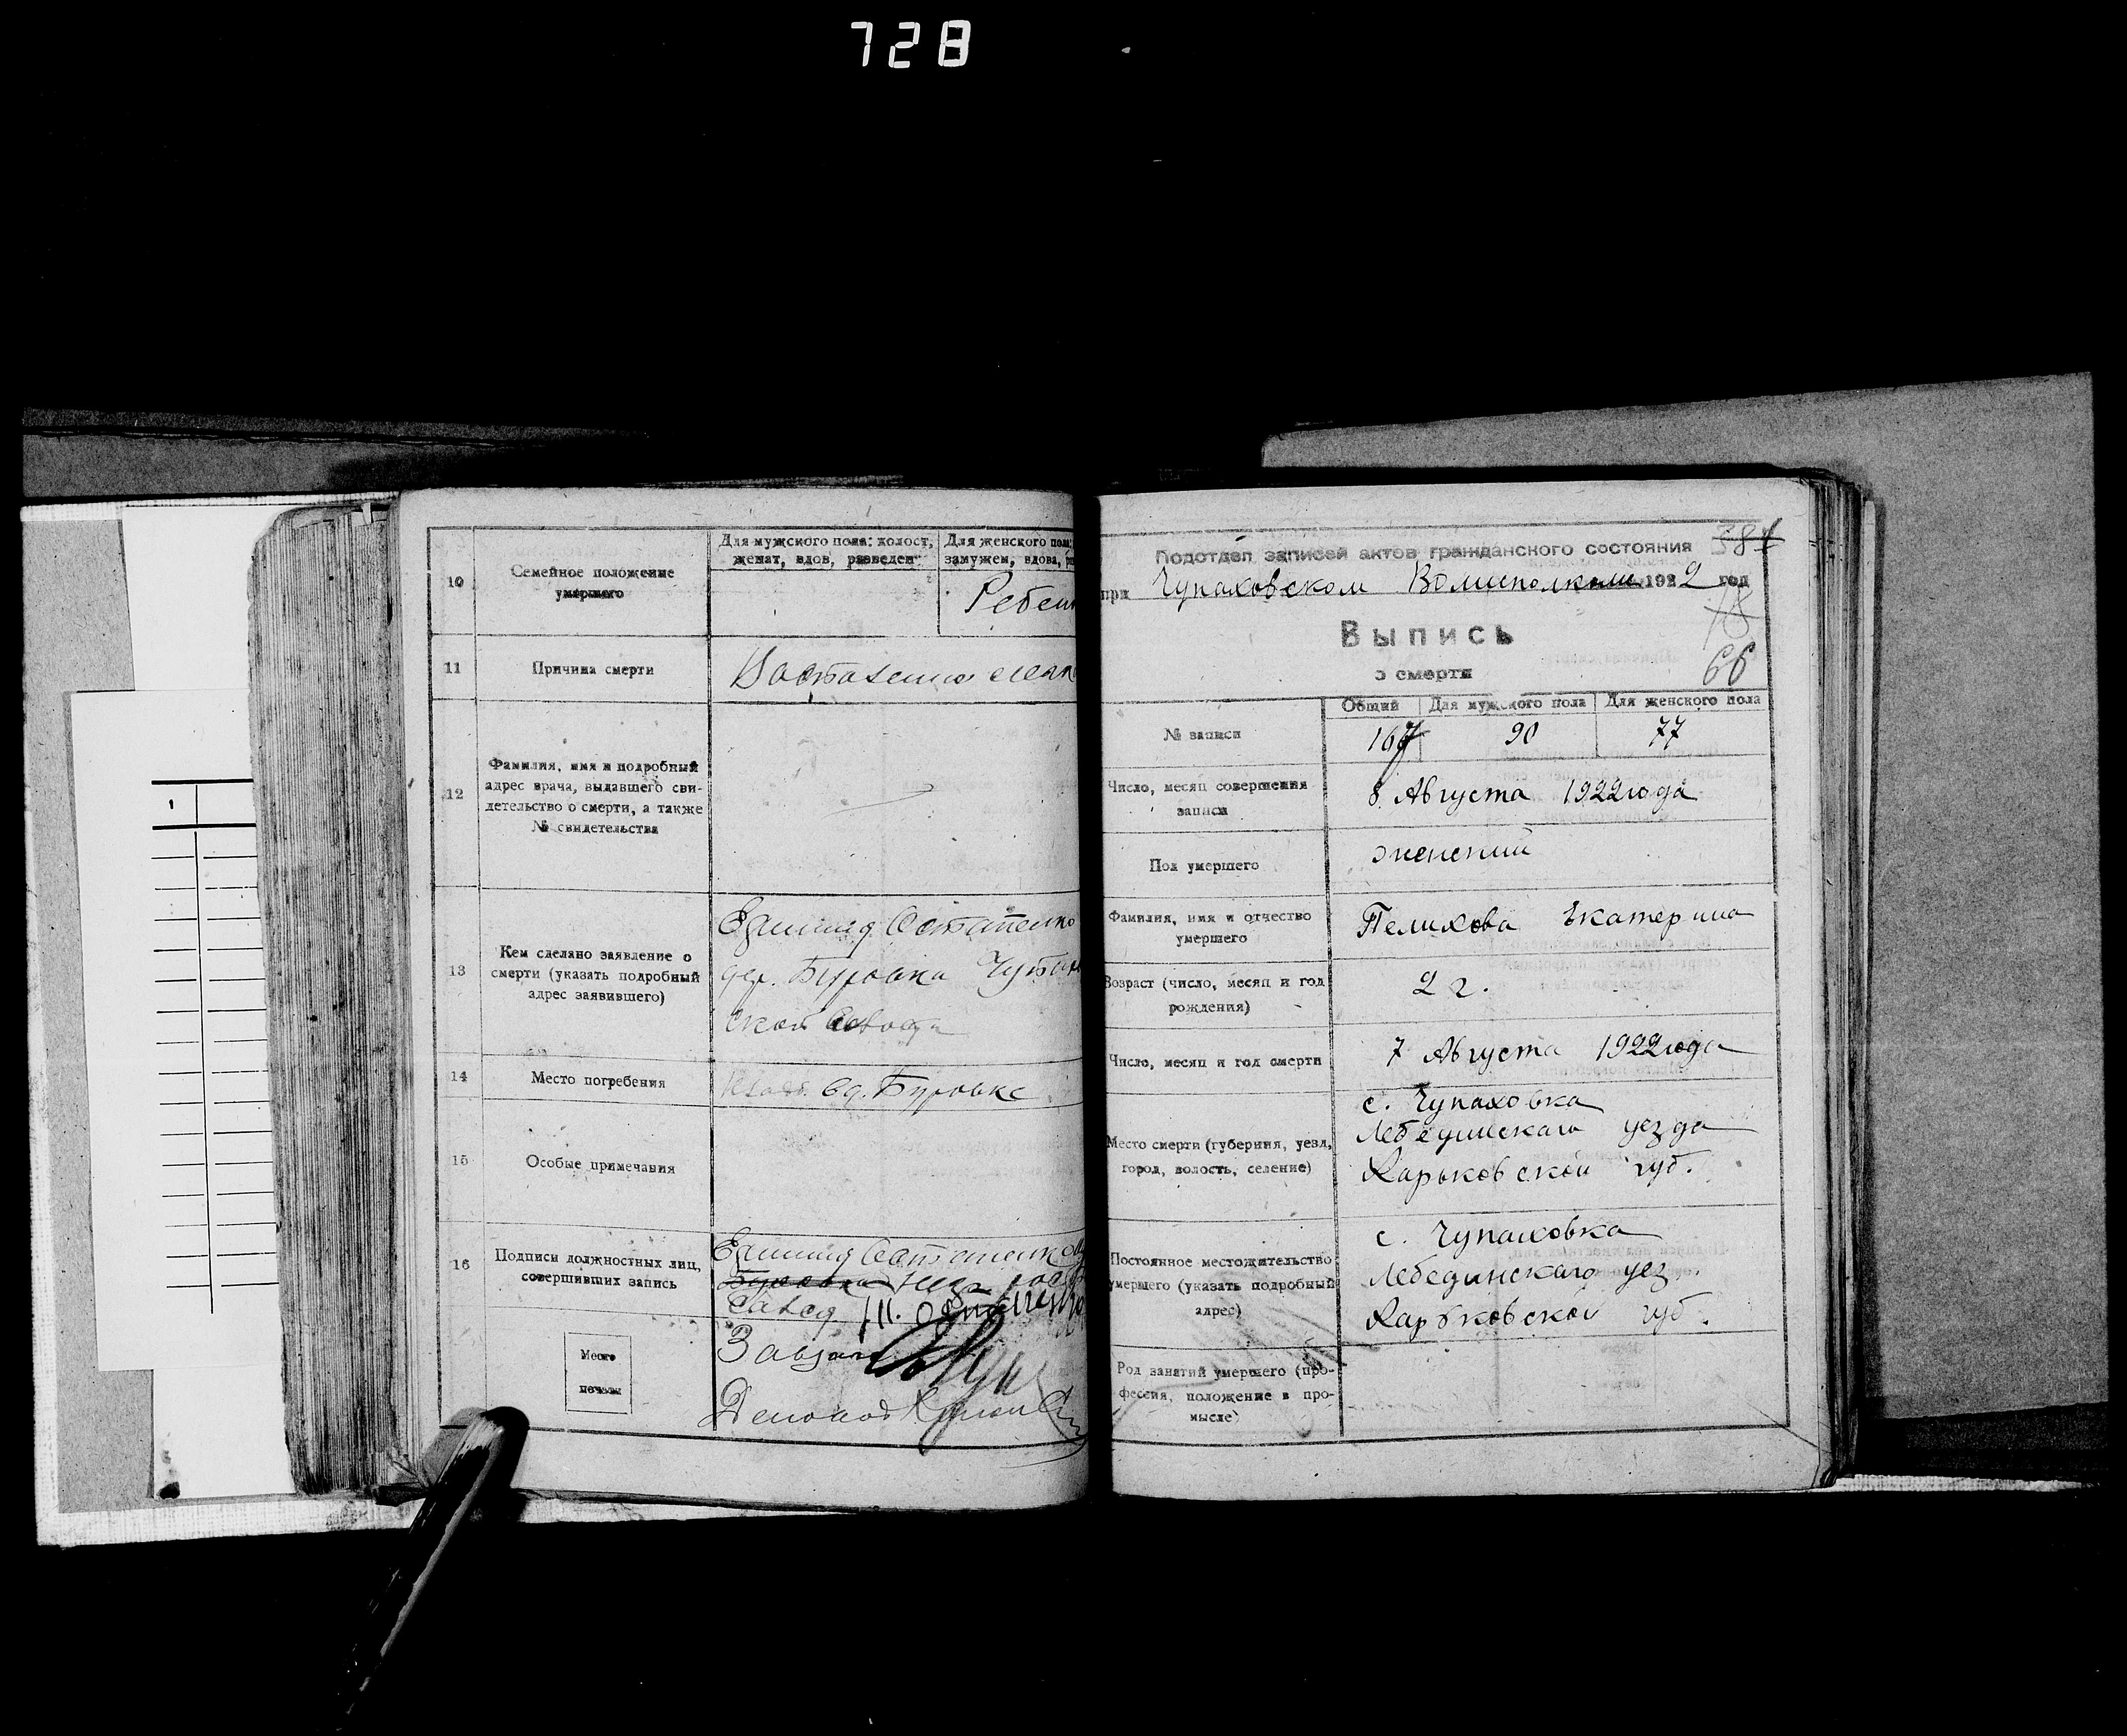 728
10
Семейное положение
умершего
Для мужского пола: холост,
женат, вдов, разведен
Для женского пола:
замужем, вдова,
Ребен
11
Причина смерти
12
Фамилия, имя и подробный
адрес врача, выдавшего сви-
детельство о смерти, а также
№ свидетельства
13
Кем сделано заявление о
смерти (указать подробный
адрес заявившего)
Остапенко
дер. Буровка
ской
14
Место погребения
Буровке
15
Особые примечания
16
Подписи должностных лиц,
совершивших запись
Остапенко
Место
печати
387
Подотдел записей актов гражданского состояния
при Чупаховском Волисполкоме 1922 год
18
Выпись
о смерти
66
№ записи
Общий
Для мужского пола
Для женского пола
167
90
77
Число, месяц совершения
записи
8 Августа 1922 года
Пол умершего
женский
Фамилия, имя и отчество
умершего
Пелихова Екатерина
Возраст (число, месяц и год
рождения)
2 г.
Число, месяц и год смерти
7 Августа 1922 года
Место смерти (губерния, уезд,
город, волость, селение)
с. Чупаховка
Лебединскаго уезда
Харьковской губ.
Постоянное местожительство
умершего (указать подробный
адрес)
с. Чупаховка
Лебединскаго уез.
Харьковской губ.
Род занятий умершего (про-
фессия, положение в про-
мысле)